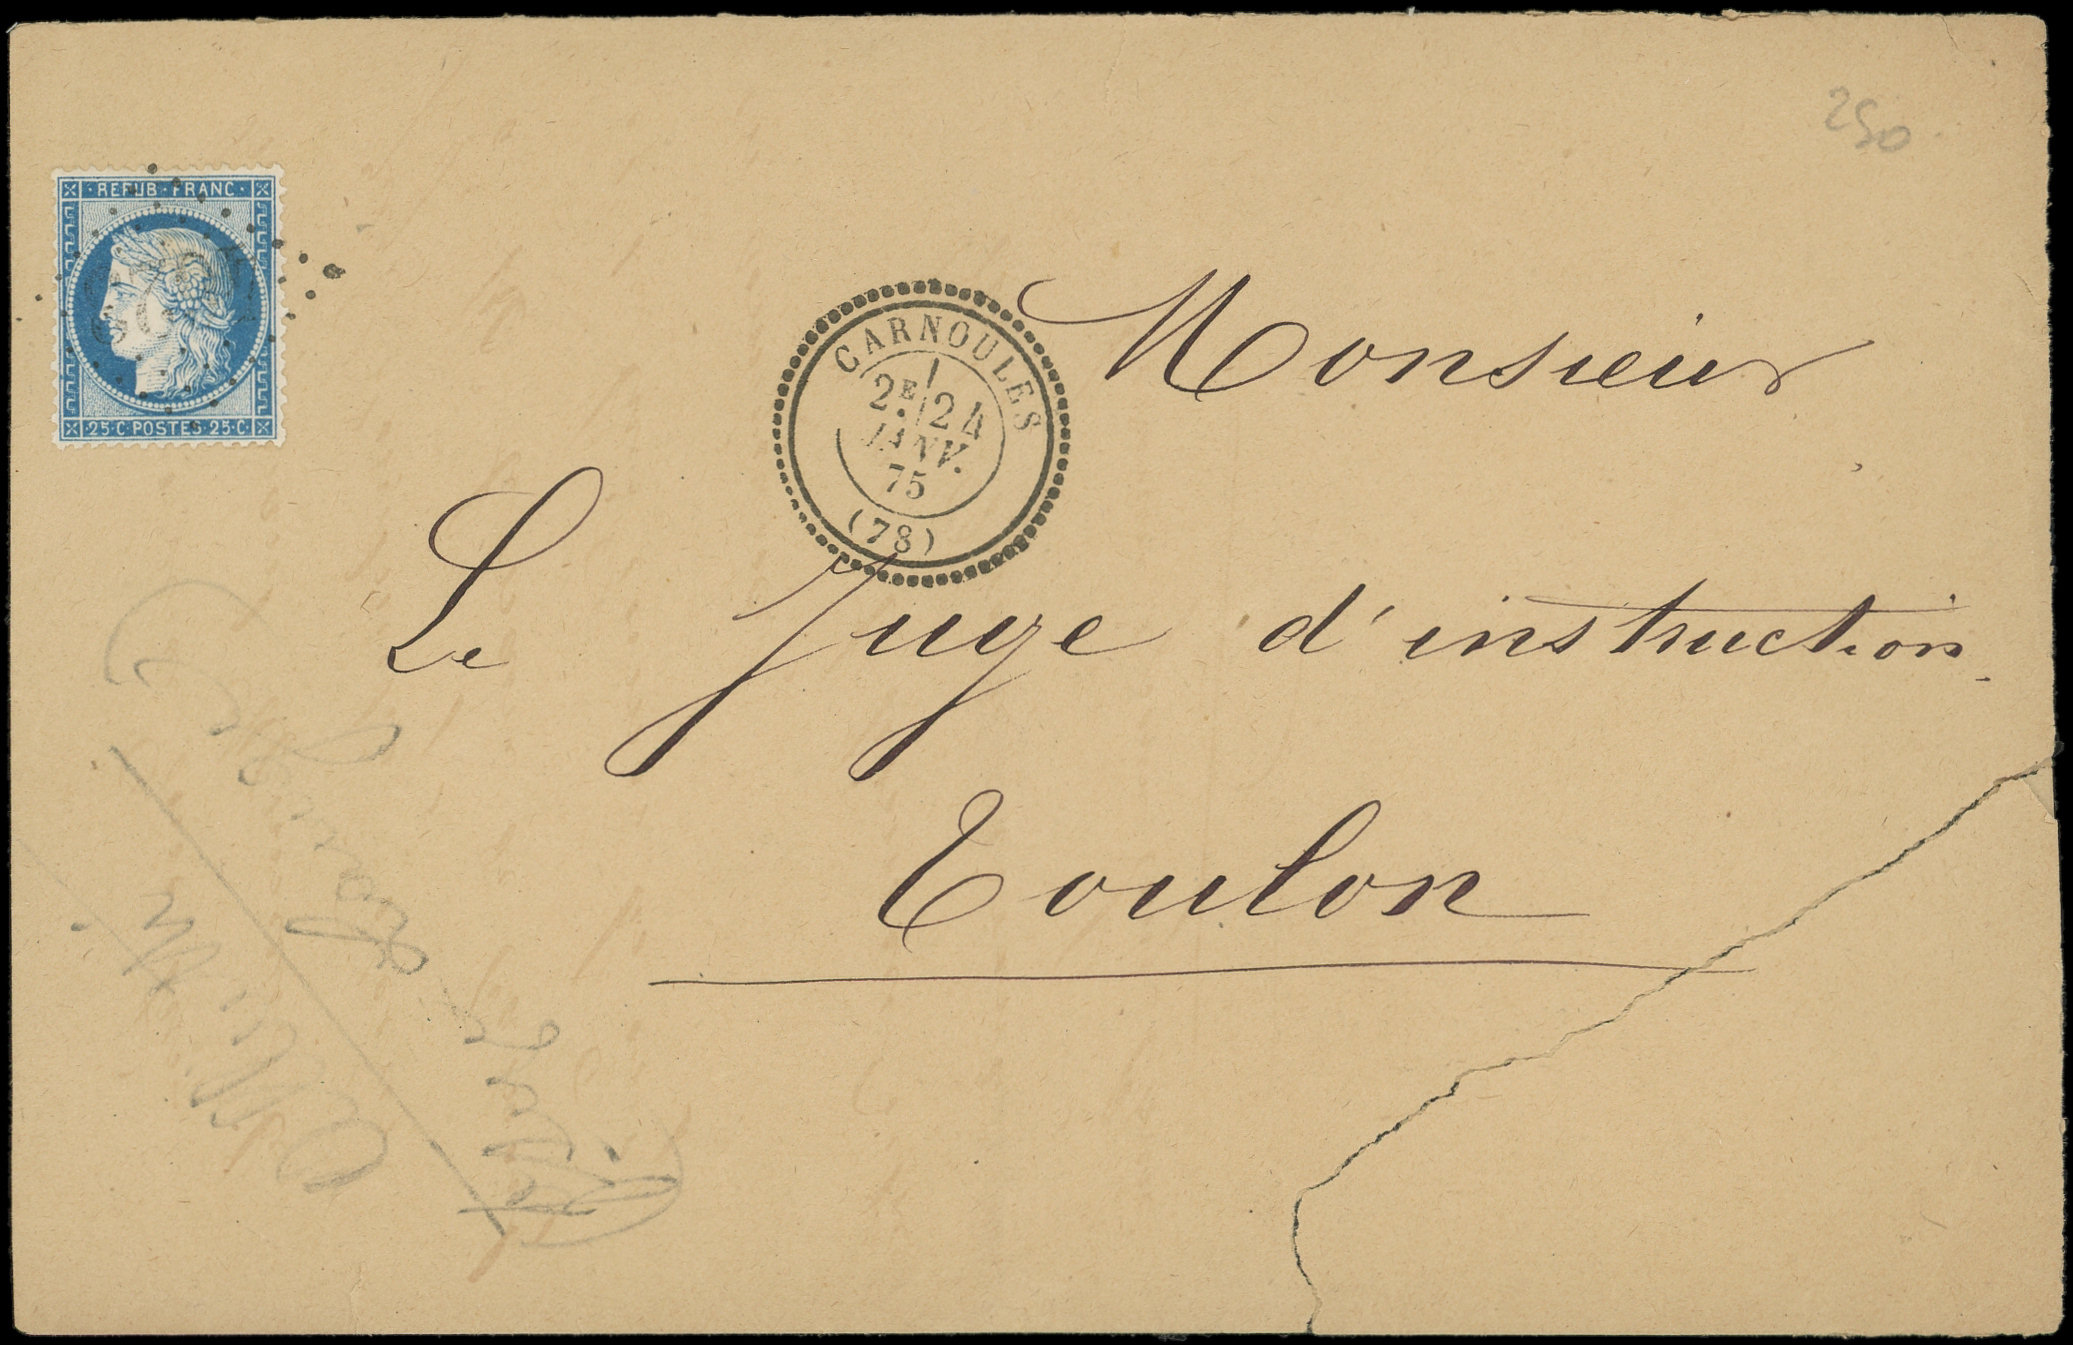 250
REPUB·FRANC·
25·C·POSTES·25·C·
CARNOULES
2E 24
JANV.
75
(78)
Monsieur
Le Juge d'instruction
Toulon